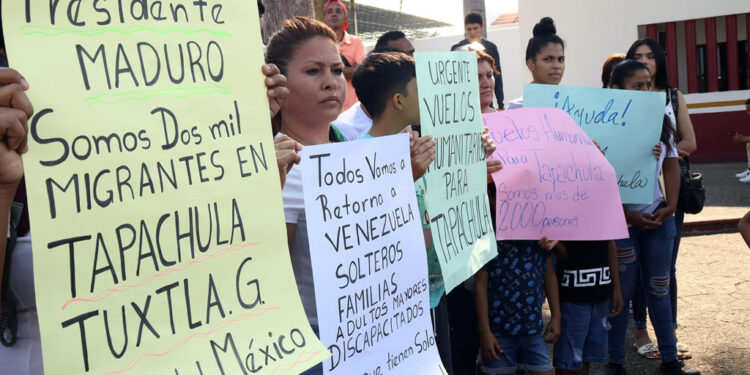 Presidente
MADURO
Somos Dos mil
MIGRANTES EN
TAPACHULA
TUXTLA.G.
México
Todos Vamos a
Retorno a
VENEZUELA
SOLTEROS
FAMILIAS
ADULTOS MAYORES
DISCAPACITADOS
que tienen Solo
URGENTE
VUELOS
HUMANITARIOS
PARA
TAPACHULA
Vuelos Humani
Para Tapachula
Somos mas de
2.000 personas
¡Ayuda!